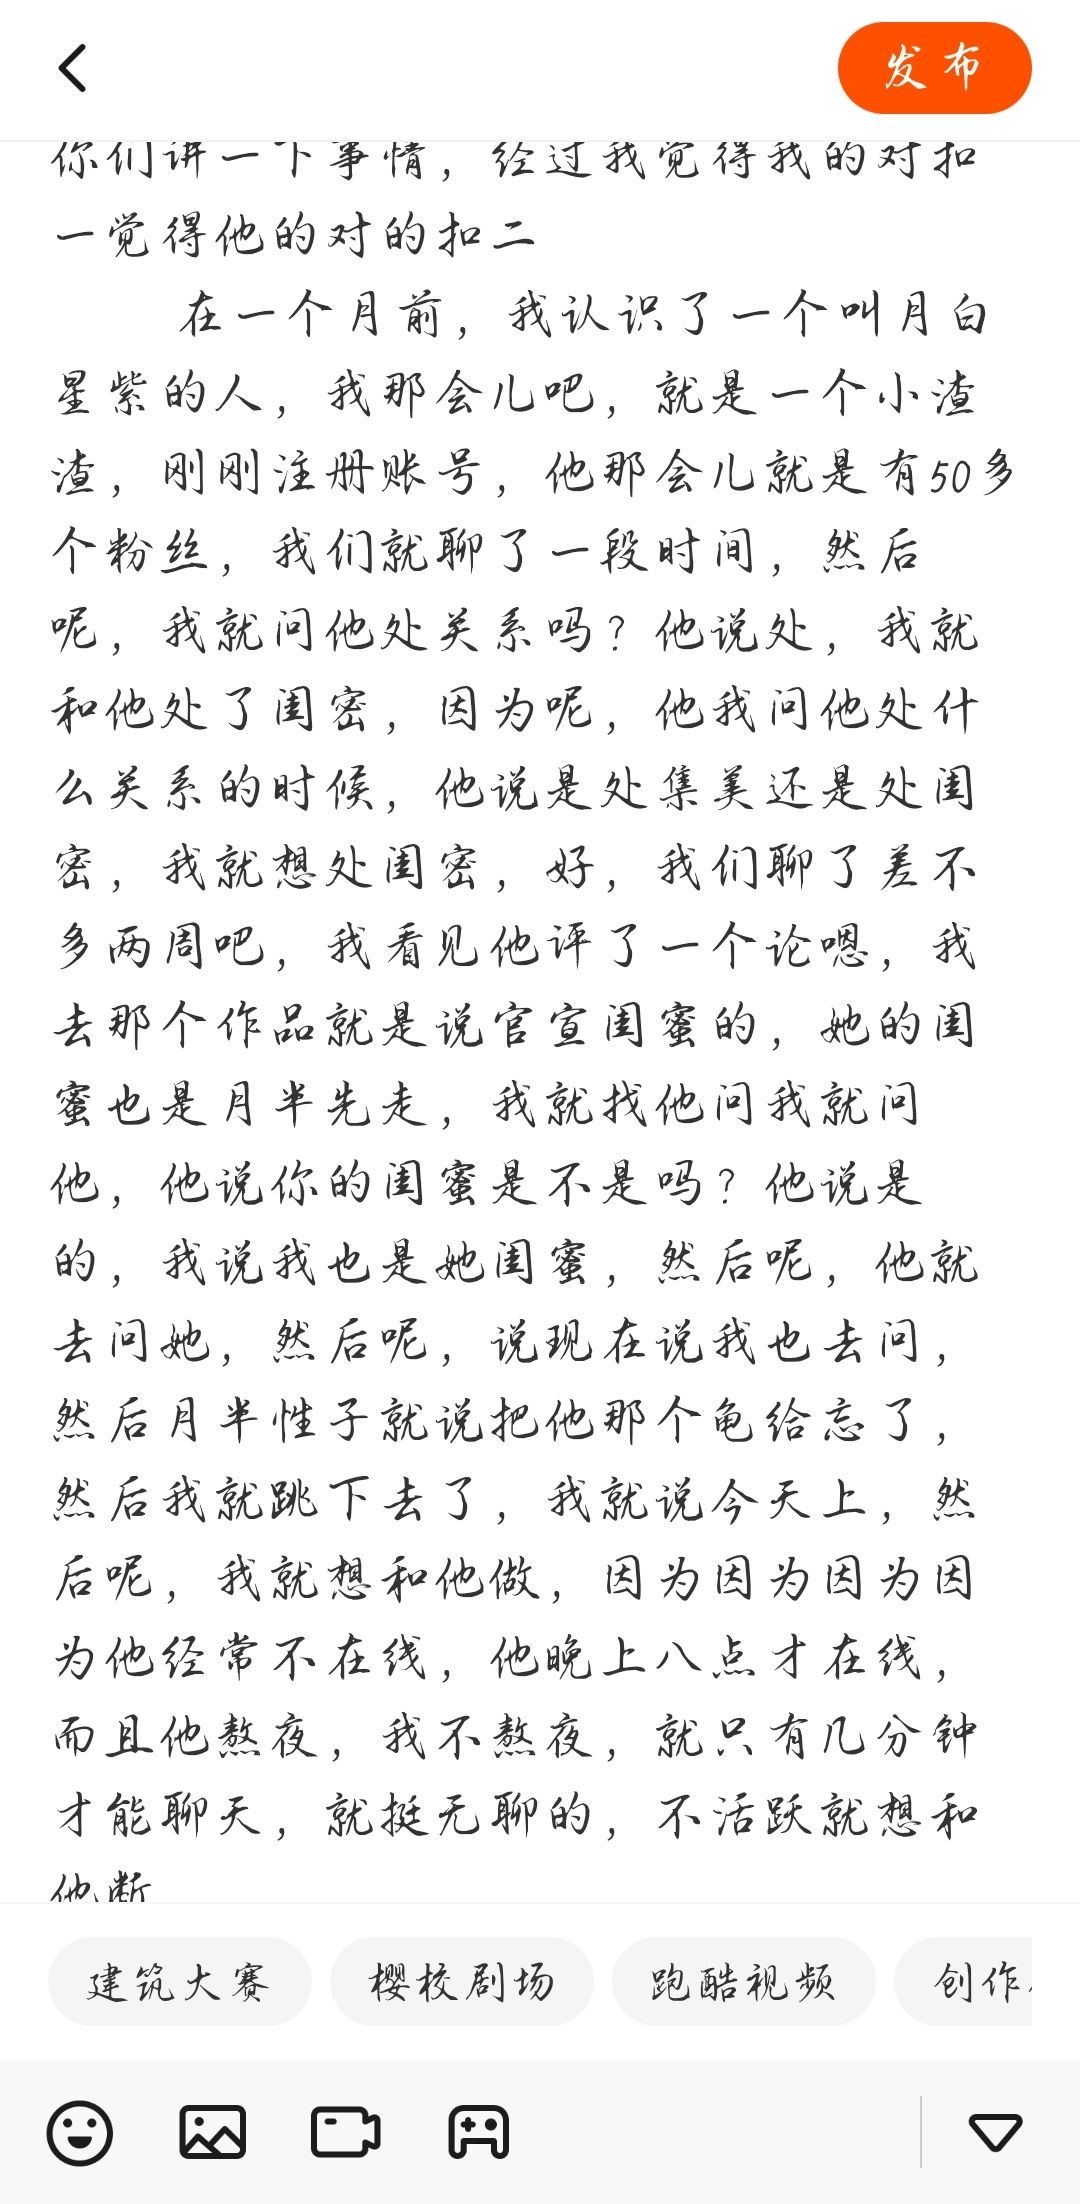 发布
你们讲一下事情，经过我觉得我的对扣
一觉得他的对的扣二
在一个月前，我认识了一个叫月白
星紫的人，我那会儿吧，就是一个小渣
渣，刚刚注册账号，他那会儿就是有50多
个粉丝，我们就聊了一段时间，然后
呢，我就问他处关系吗？他说处，我就
和他处了闺密，因为呢，他我问他处什
么关系的时候，他说是处集美还是处闺
密，我就想处闺密，好，我们聊了差不
多两周吧，我看见他评了一个论嗯，我
去那个作品就是说官宣闺蜜的，她的闺
蜜也是月半先走，我就找他问我就问
他，他说你的闺蜜是不是吗？他说是
的，我说我也是她闺蜜，然后呢，他就
去问她，然后呢，说现在说我也去问，
然后月半性子就说把他那个龟给忘了，
然后我就跳下去了，我就说今天上，然
后呢，我就想和他做，因为因为因为因
为他经常不在线，他晚上八点才在线，
而且他熬夜，我不熬夜，就只有几分钟
才能聊天，就挺无聊的，不活跃就想和
他断
建筑大赛 樱校剧场 跑酷视频 创作